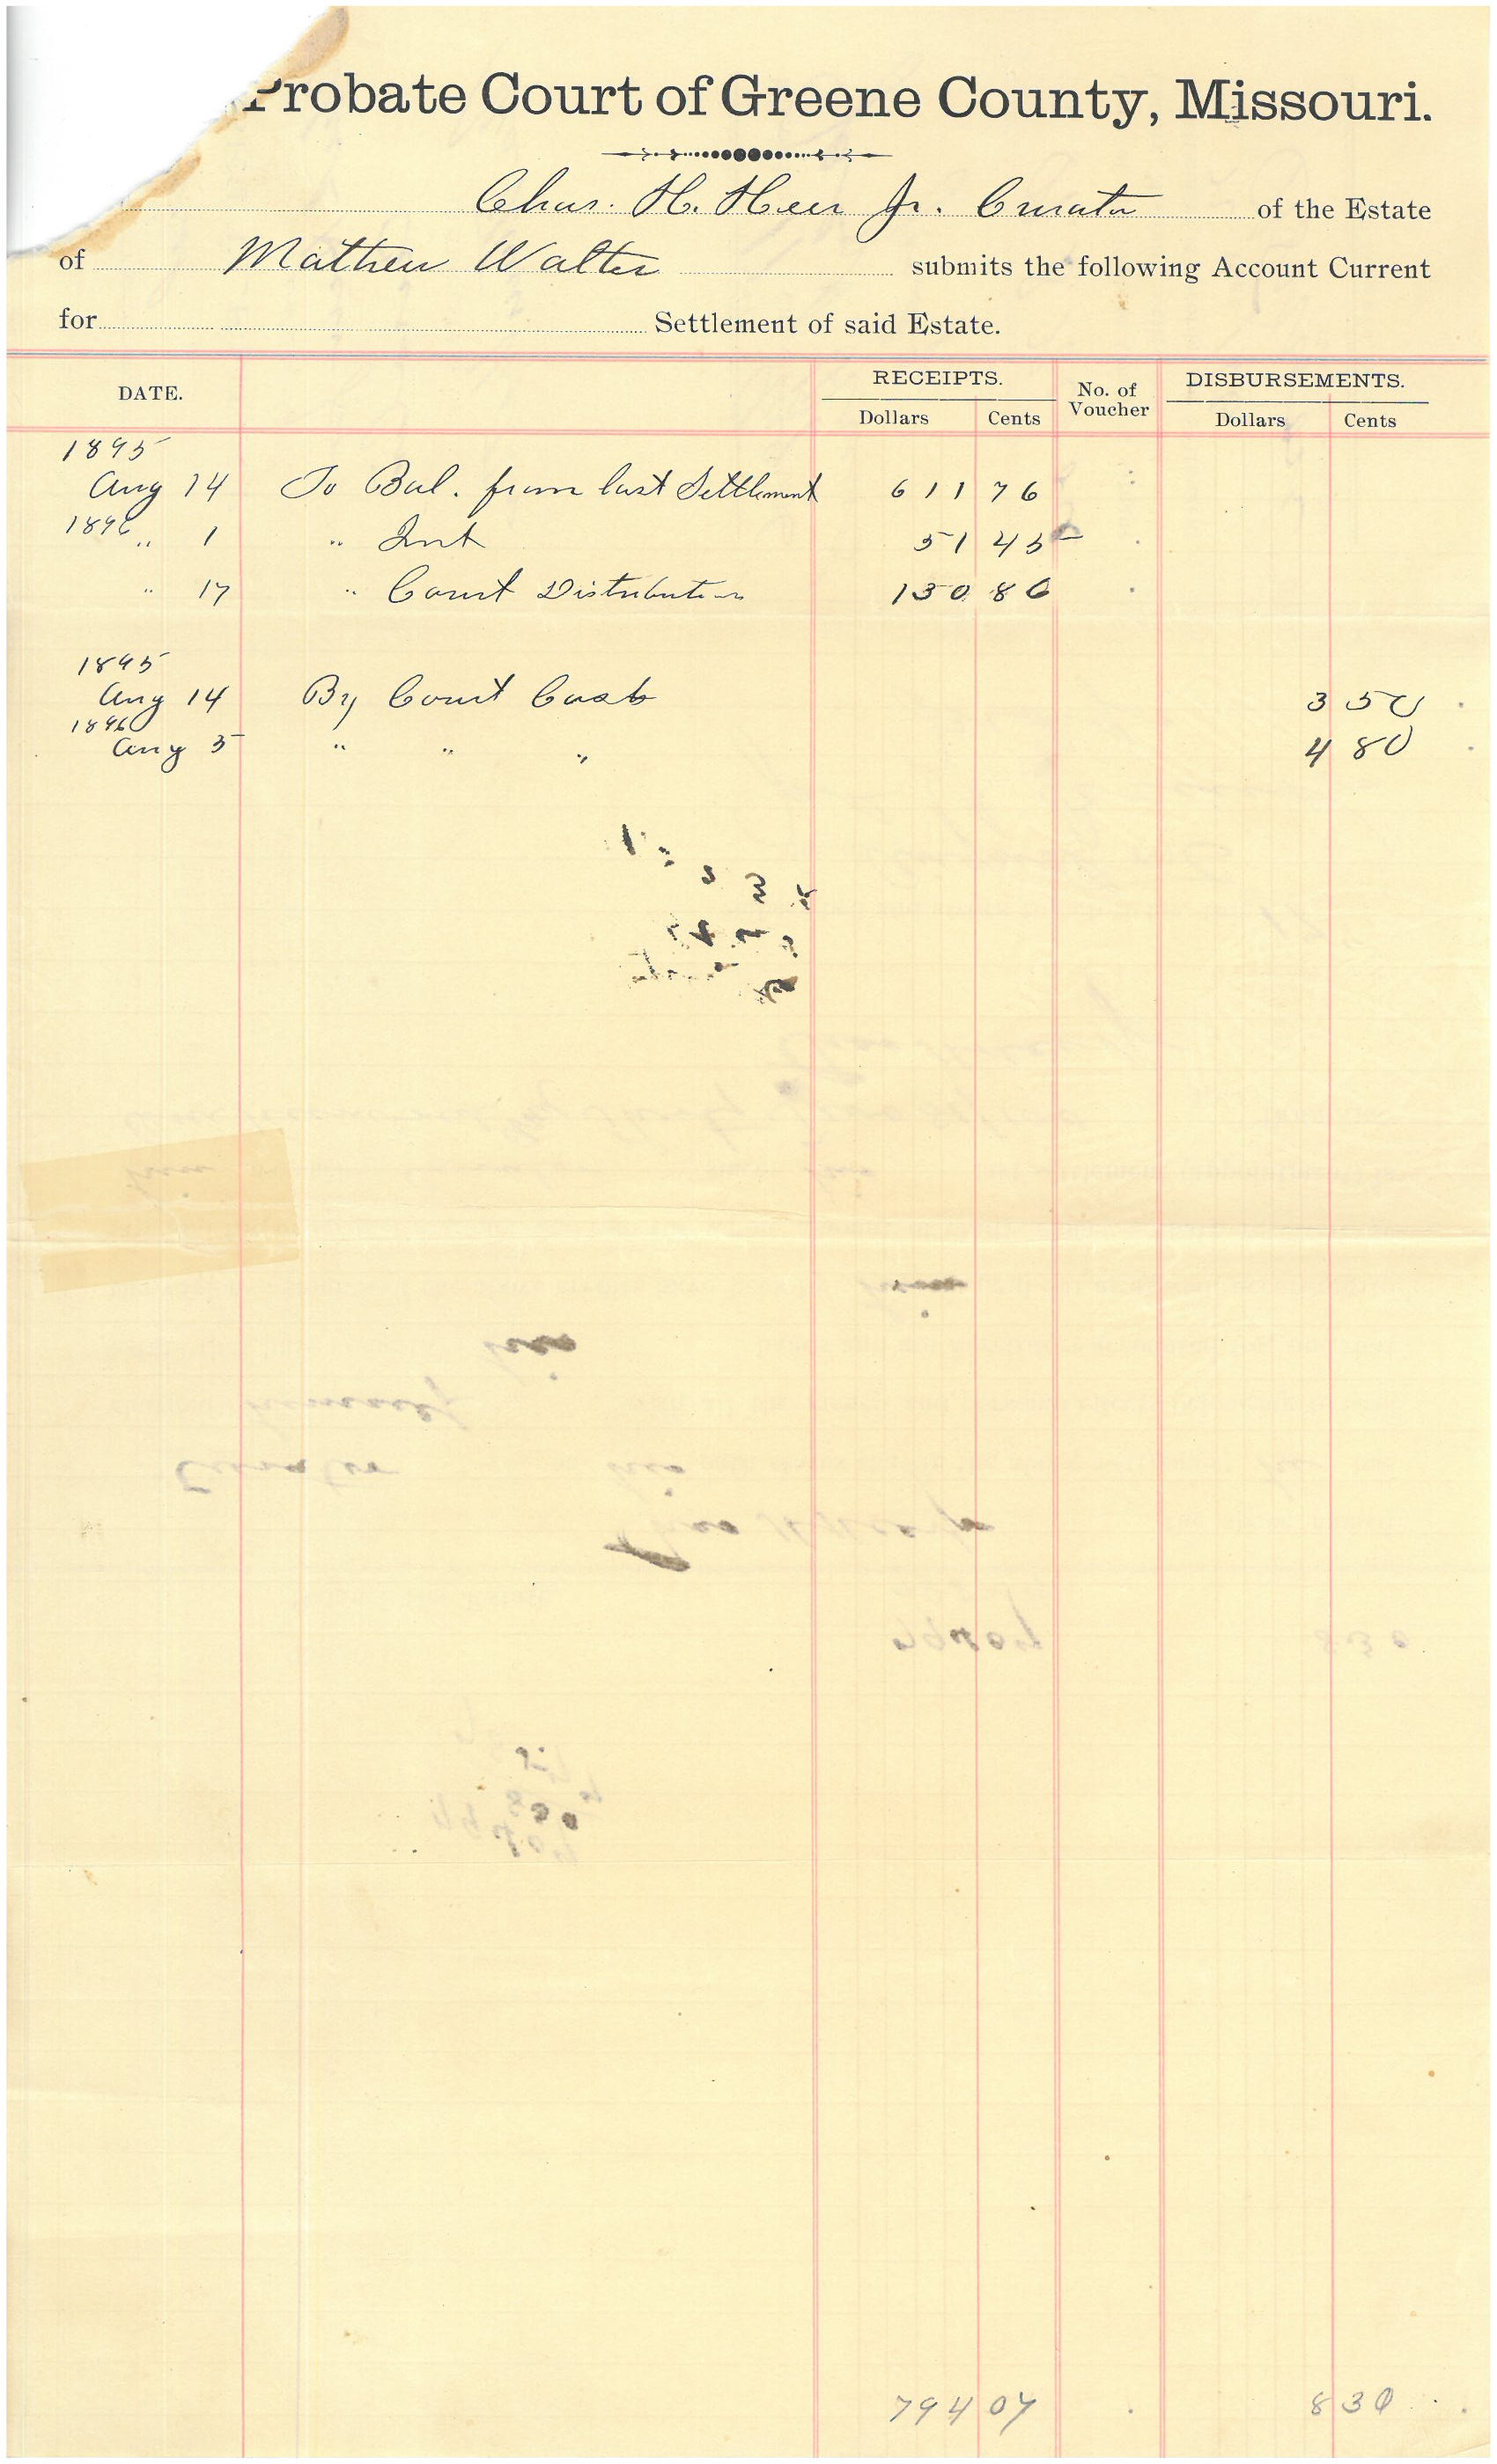 Probate Court of Greene County, Missouri.
Chas. H. Heer Jr. Curator of the Estate
of Mathew Walter submits the following Account Current
for Settlement of said Estate.
DATE. RECEIPTS. No. of Voucher DISBURSEMENTS.
Dollars Cents Dollars Cents
1895
Aug 14 To Bal. from last Settlement 611 76
1896 " 1 " Int 51 45
" 17 " Court Distribution 130 86
1895
Aug 14 By Court Cost 3 50
1896
Aug 5 " " " 4 80
794 07 8 30